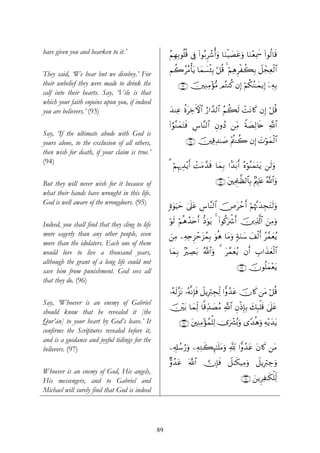 have given you and hearken to it.'
They said, 'We hear but we disobey.' For
their unbelief they were made to drink the
calf into their hearts. Say, 'Vile is that
which your faith enjoins upon you, if indeed
you are believers.' (93)
Say, 'If the ultimate abode with God is
yours alone, to the exclusion of all others,
then wish for death, if your claim is true.'
(94)
But they will never wish for it because of
what their hands have wrought in this life.
God is well aware of the wrongdoers. (95)
Indeed, you shall find that they cling to life
more eagerly than any other people, even
more than the idolaters. Each one of them
would love to live a thousand years,
although the grant of a long life could not
save him from punishment. God sees all
that they do. (96)
Say, 'Whoever is an enemy of Gabriel
should know that he revealed it [the
Qur'an] to your heart by God's leave.' It
confirms the Scriptures revealed before it,
and is a guidance and joyful tidings for the
believers. (97)
Whoever is an enemy of God, His angels,
His messengers, and to Gabriel and
Michael will surely find that God is indeed
قَالُوا۟ سَمِعْنَا وَعَصَيْنَا وَأُشْرِبُوا۟ فِى قُلُوبِهِمُ
ٱلْعِجْلَ بِكُفْرِهِمْ ۚ قُلْ بِئْسَمَا يَأْمُرُكُم
بِهِۦٓ إِيمَـٰنُكُمْ إِن كُنتُم مُّؤْمِنِينَ ﴿٩٣﴾
قُلْ إِن كَانَتْ لَكُمُ ٱلدَّارُ ٱلْـَٔاخِرَةُ عِندَ
ٱللَّهِ خَالِصَةً مِّن دُونِ ٱلنَّاسِ فَتَمَنَّوُا۟
ٱلْمَوْتَ إِن كُنتُمْ صَـٰدِقِينَ ﴿٩٤﴾
وَلَن يَتَمَنَّوْهُ أَبَدًۢا بِمَا قَدَّمَتْ أَيْدِيهِمْ ۗ
وَٱللَّهُ عَلِيمٌۢ بِٱلظَّـٰلِمِينَ ﴿٩٥﴾
وَلَتَجِدَنَّهُمْ أَحْرَصَ ٱلنَّاسِ عَلَىٰ حَيَوٰةٍ
وَمِنَ ٱلَّذِينَ أَشْرَكُوا۟ ۚ يَوَدُّ أَحَدُهُمْ لَوْ
يُعَمَّرُ أَلْفَ سَنَةٍ وَمَا هُوَ بِمُزَحْزِحِهِۦ مِنَ
ٱلْعَذَابِ أَن يُعَمَّرَ ۗ وَٱللَّهُ بَصِيرٌۢ بِمَا
يَعْمَلُونَ ﴿٩٦﴾
قُلْ مَن كَانَ عَدُوًّا لِّجِبْرِيلَ فَإِنَّهُۥ نَزَّلَهُۥ
عَلَىٰ قَلْبِكَ بِإِذْنِ ٱللَّهِ مُصَدِّقًا لِّمَا بَيْنَ
يَدَيْهِ وَهُدًى وَبُشْرَىٰ لِلْمُؤْمِنِينَ ﴿٩٧﴾
مَن كَانَ عَدُوًّا لِّلَّهِ وَمَلَـٰٓئِكَتِهِۦ وَرُسُلِهِۦ
وَجِبْرِيلَ وَمِيكَىٰلَ فَإِنَّ ٱللَّهَ عَدُوٌّ
لِّلْكَـٰفِرِينَ ﴿٩٨﴾
89